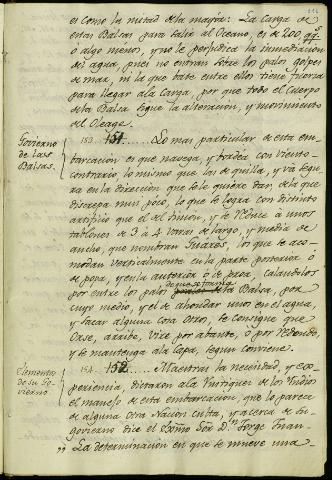 es como la mitad de la mayór: La carga de
estas Balsas para salir al Oceano, es de 200 qq.s
ó algo menor, y no le perjudica la inmediacion
del agua, pues no entran sobre los palos golpes
de mar, ni la que bate entre ellos tiene fuerza
para llegar ála Carga, por que todo el Cuerpo
de la Balsa sigue la alteración, y movimiento
del Oleage.
Govierno
de las
Balsas.
153. 151. Lo mas particular de esta em-
barcacion es que navega, y bordéa con viento
contrario, lo mismo que las de quilla, y va segu-
ra en la direccion que se le quiere dar, de la que
discrepa mui poco, lo que se logra con distinto
artificio que el del timon, y se reduce á unos
tablones de 3 á 4 varas de largo, y media de
ancho, que nombran Guares, los que se aco-
modan verticalmente en la parte posterior ó
de popa, y en la anterior ó de proa, calandolos
por entre los palos de que se forma la Balsa, por
cuyo medio, y el de ahondar unos en el agua,
y sacar alguna cosa otros, se consigue que
Orse, arribe, vire por abante, ó por redondo,
y se mantenga ála Capa, segun conviene.
Elementos
de su Go-
vierno.
154. 152. Maestras la necesidad, y ex-
periencia, dictaron ála rustiquez de los Indios
el manejo de esta embarcacion, que lo parece
de alguna otra Nacion culta, y acerca de su
govierno dice el Exmo Sor D.n Jorge Juan
„ La determinacion en que se mueve una